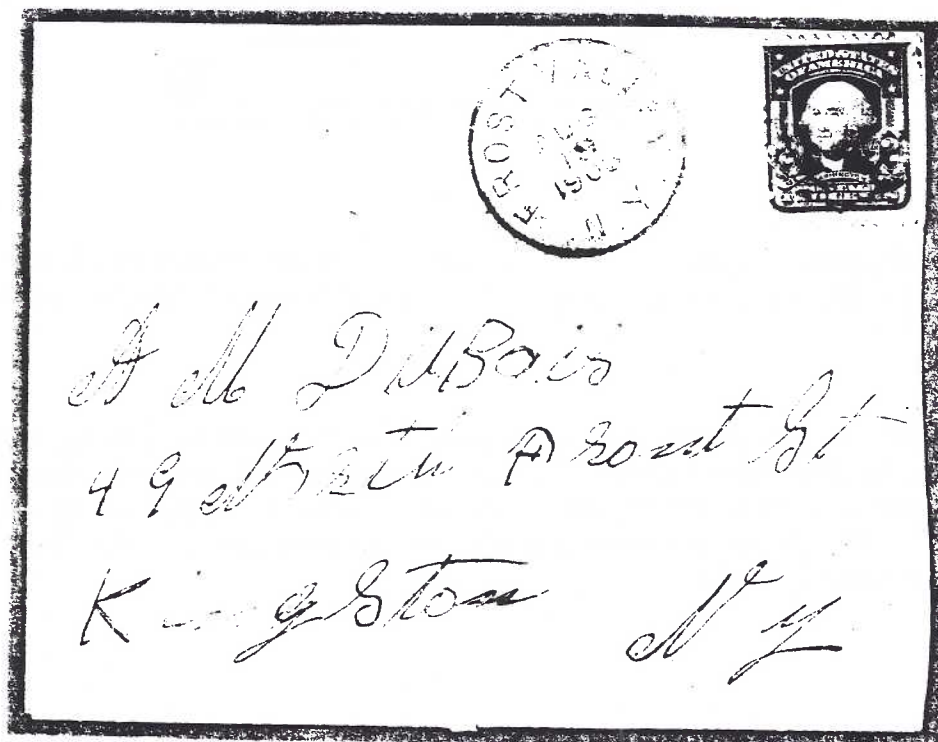 FROST VALLEY N.Y.
AUG
UNITED STATES
OF AMERICA
M DuBois
49 North Front St
Kingston
N Y